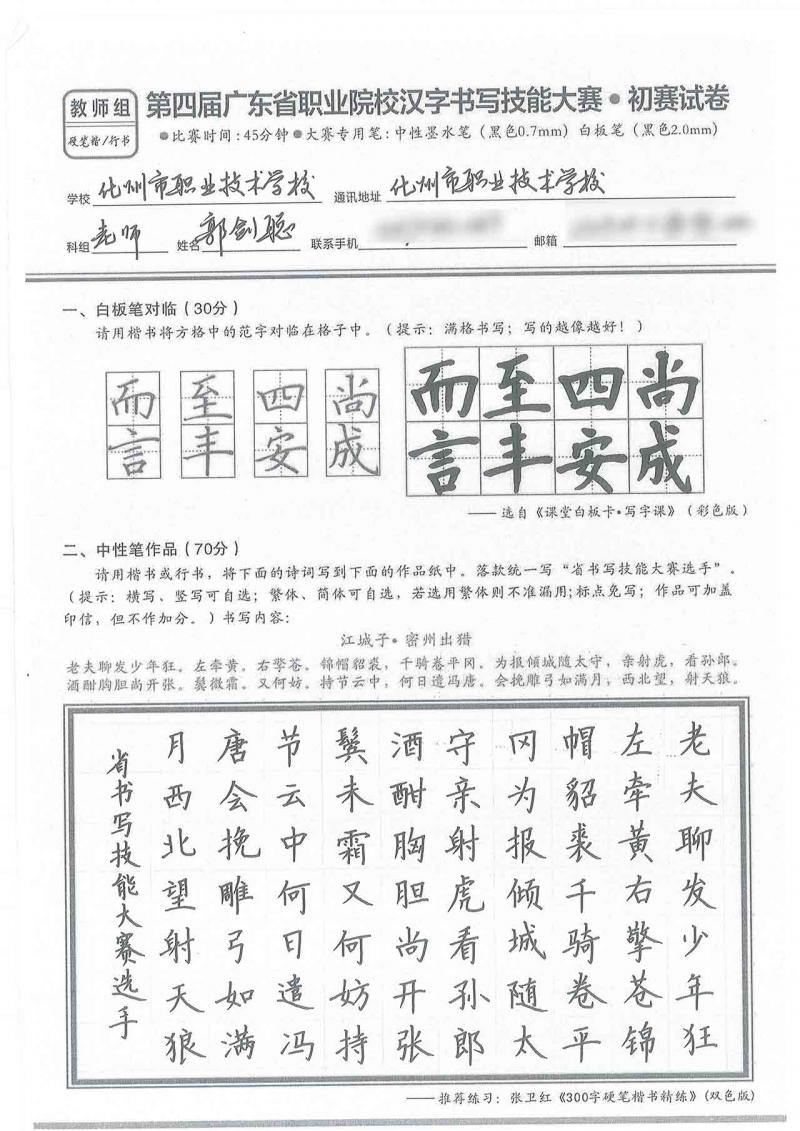 教师组
硬笔楷/行书
第四届广东省职业院校汉字书写技能大赛·初赛试卷
●比赛时间:45分钟●大赛专用笔:中性墨水笔(黑色0.7mm)白板笔(黑色2.0mm)
学校 化州市职业技术学校 通讯地址 化州市职业技术学校
科组 老师 姓名 郭剑聪 联系手机 邮箱
一、白板笔对临(30分)
请用楷书将方格中的范字对临在格子中。(提示:满格书写;写的越像越好!)
而至四尚
言丰安成
而至四尚
言丰安成
——选自《课堂白板卡·写字课》(彩色版)
二、中性笔作品(70分)
请用楷书或行书,将下面的诗词写到下面的作品纸中。落款统一写“省书写技能大赛选手”。
(提示:横写、竖写可自选;繁体、简体可自选,若选用繁体则不准漏用;标点免写;作品可加盖
印信,但不作加分。)书写内容:
江城子·密州出猎
老夫聊发少年狂。左牵黄。右擎苍。锦帽貂裘,千骑卷平冈。为报倾城随太守,亲射虎,看孙郎。
酒酣胸胆尚开张。鬓微霜。又何妨。持节云中,何日遣冯唐。会挽雕弓如满月,西北望,射天狼。
老夫聊发少年狂
左牵黄右擎苍锦
帽貂裘千骑卷平
冈为报倾城随太
守亲射虎看孙郎
酒酣胸胆尚开张
鬓未霜又何妨持
节云中何日遣冯
唐会挽雕弓如满
月西北望射天狼
省书写技能大赛选手
——推荐练习:张卫红《300字硬笔楷书精练》(双色版)